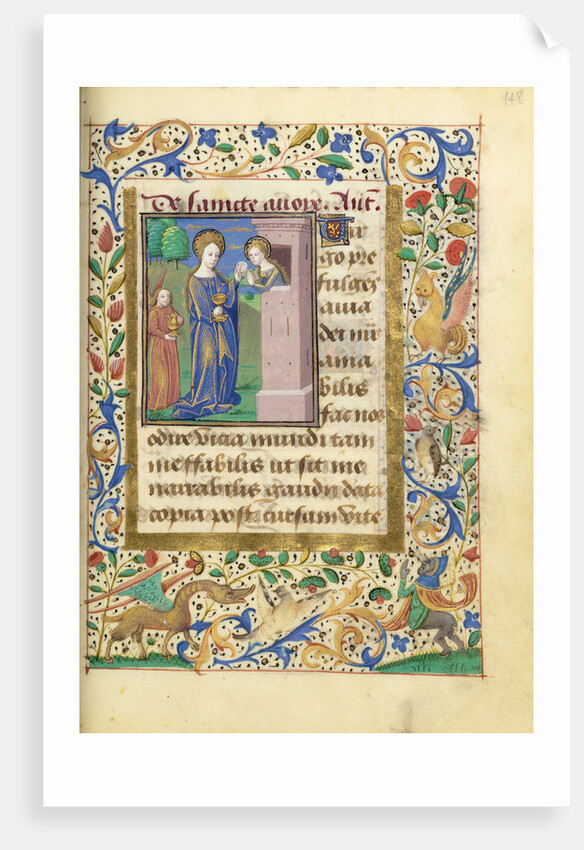 148
De sancte avope. Ant̄.
Vir
go pre
fulgēs
avia
dei mir
ama
bilis
fac nos
odire vicia mundi tam
ineffabilis ut sit ine
narrabilis gaudii data
copia post cursum vite